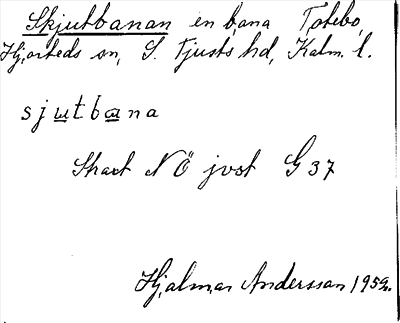 Skjutbanan en bana Totebo,
Hjorteds sn, S. Tjusts hd, Kalm. l.
sjutbana
Skaxt NÖ jvst G 37
Hjalmar Andersson 1959.